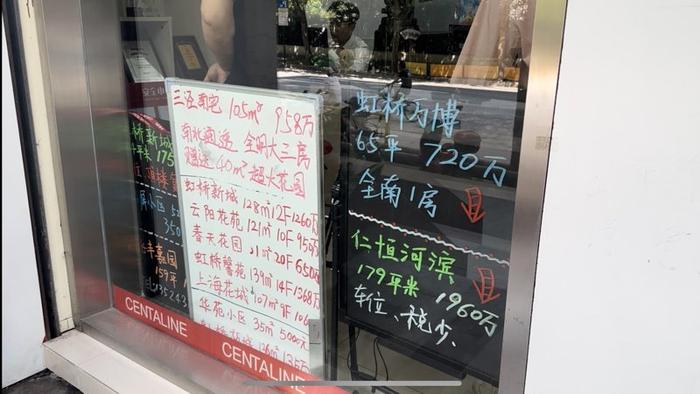 三泾南宅 105m² 958万
南北通透 全明大三房
赠送40m²超大花园
虹桥新城 128m² 12F 1260万
云阳花苑 121m² 10F 950万
春天花园 211m² 20F 650万
虹桥馨苑 139m² 14F 1368万
上海花城 107m² 9F 106
华苑小区 35m² 5000元
136m² 1355
虹桥万博
65平 720万
全南1房
仁恒河滨
179平米 1960万
车位、税少、
桥新城
平米 175
小区
350
丰嘉园
159平
135243
CENTALINE
CENTALINE